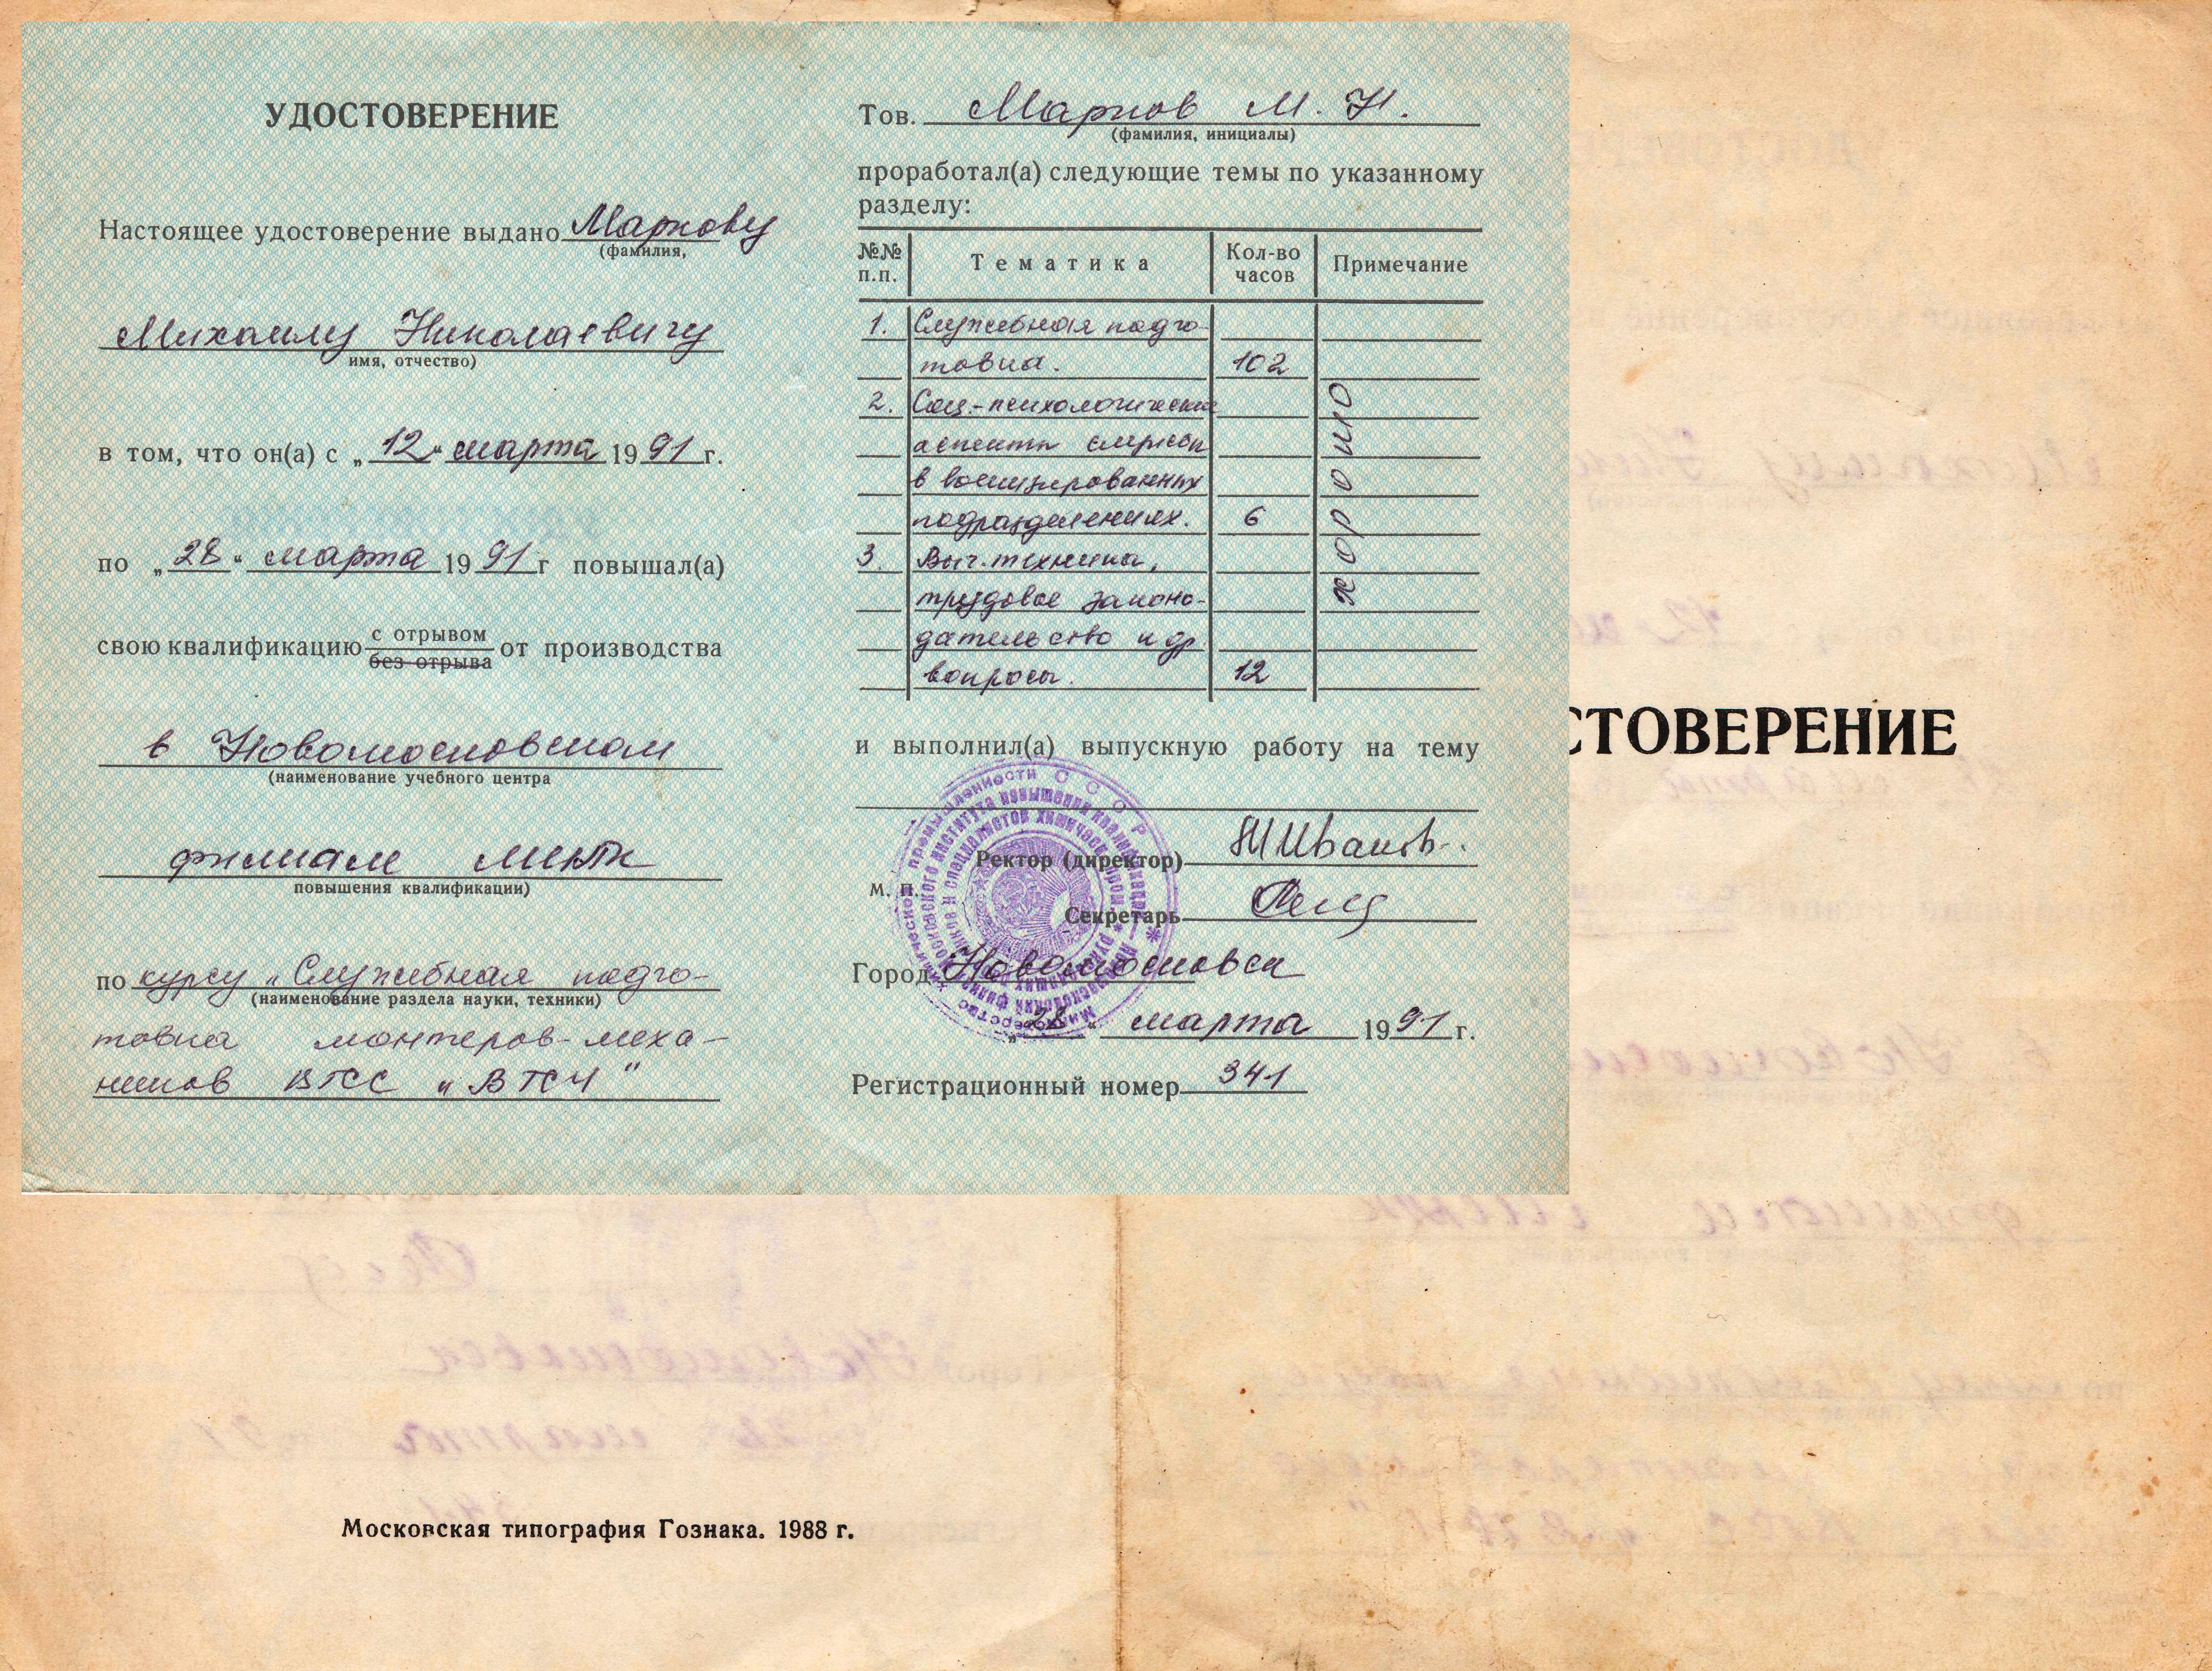 УДОСТОВЕРЕНИЕ
Настоящее удостоверение выдано Маркову
(фамилия,
Михаилу Николаевичу
имя, отчество)
в том, что он(а) с „12“ марта 1991 г.
по „28“ марта 1991 г повышал(а)
свою квалификацию с отрывом от производства
без отрыва
в Новомосковском
(наименование учебного центра
филиале МИПК
повышения квалификации)
по курсу „Служебная подго-
(наименование раздела науки, техники)
товка монтеров-меха-
ников ВГСС „ВТСЧ"
Тов. Марков М. Н.
(фамилия, инициалы)
проработал(а) следующие темы по указанному
разделу:
№№ п.п. Тематика Кол-во часов Примечание
1. Служебная подго-
товка. 102
2. Соц.-психологические
аспекты службы
в военизированных
подразделениях. 6
3. Выч. техника,
трудовое законо-
дательство и др.
вопросы. 12
хорошо
и выполнил(а) выпускную работу на тему
Ректор (директор) Иванов
М. П.
Секретарь
Город Новомосковск
„28“ марта 1991 г.
Регистрационный номер 341
СТОВЕРЕНИЕ
Московская типография Гознака. 1988 г.